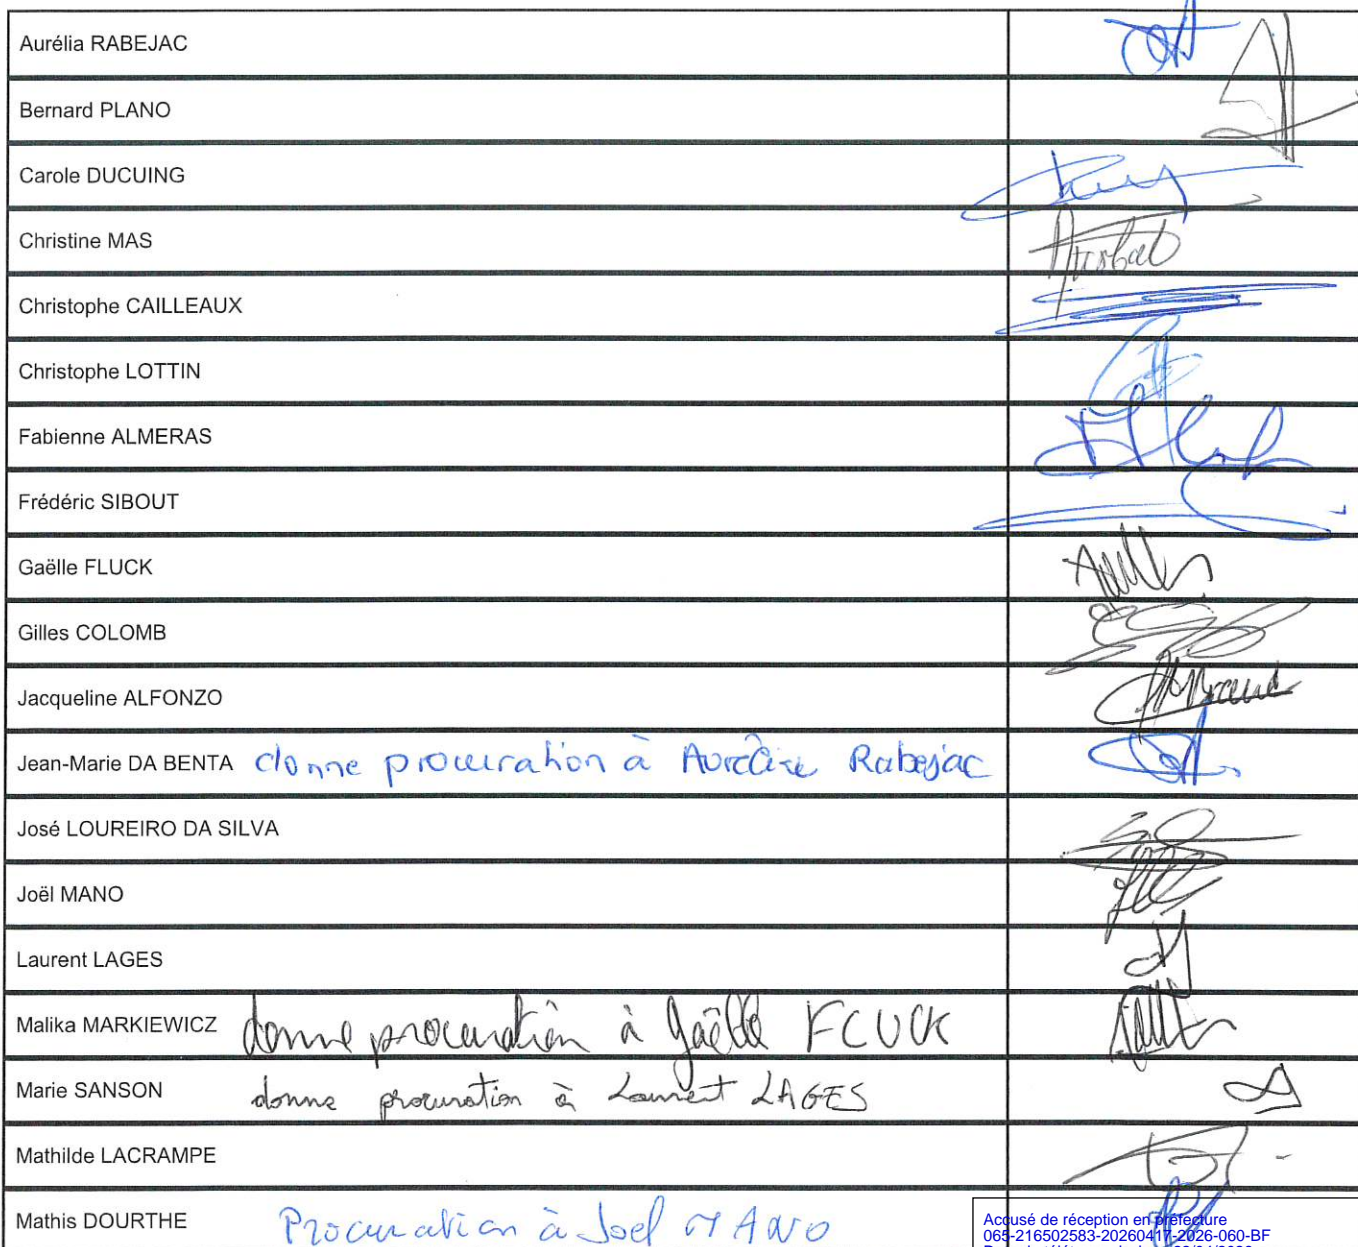 Aurélia RABEJAC
Bernard PLANO
Carole DUCUING
Christine MAS
Christophe CAILLEAUX
Christophe LOTTIN
Fabienne ALMERAS
Frédéric SIBOUT
Gaëlle FLUCK
Gilles COLOMB
Jacqueline ALFONZO
Jean-Marie DA BENTA donne procuration à Aurélie Rabejac
José LOUREIRO DA SILVA
Joël MANO
Laurent LAGES
Malika MARKIEWICZ donne procuration à Gaëlle FLUCK
Marie SANSON donne procuration à Laurent LAGES
Mathilde LACRAMPE
Mathis DOURTHE Procuration à Joel MANO
Accusé de réception en préfecture
065-216502583-20260417-2026-060-BF